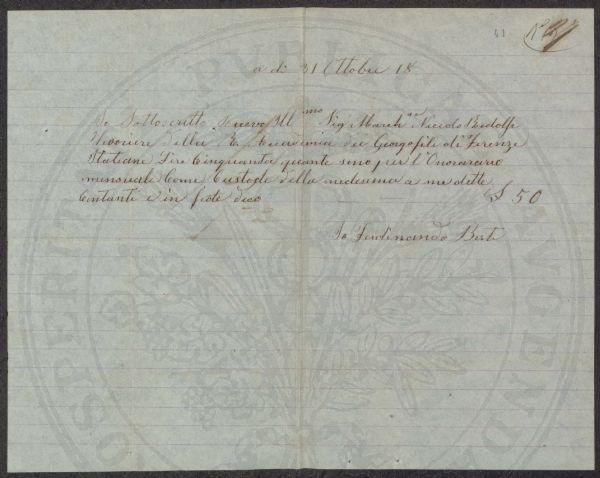 61
a dì 31 Ottobre 18
Io Sottoscritto ricevo Ill.mo Sig March.se Niccolò Ridolfi
Tesoriere della R. Accademia dei Georgofili di Firenze
Italiane Lire Cinquanta quante sono per l'Onorarario
mensuale Come Custode della medesima a me dette
Contante e in fede dico £ 50
Io Ferdinando Berti